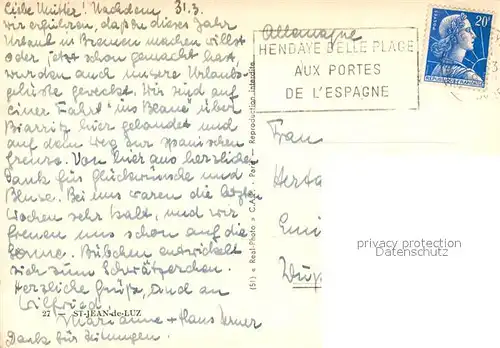 Liebe Mutter! Nachdem 31.3.
wir erfuhren, daß du dieses Jahr
Urlaub in Bremen machen willst
oder jetzt schon gemacht hast,
wurden auch unsere Urlaubs-
gelüste geweckt. Wir sind auf
einer Fahrt "ins Blaue" über
Biarritz hier gelandet und
auf dem Weg zur spanischen
Grenze. Von hier aus herzlichen
Dank für Glückwünsche und
Bluse. Bei uns waren die letzten
Wochen sehr kalt, und wir
freuen uns schon auf die
Sonne. Bübchen entwickelt
sich zum Schwätzerchen.
Herzliche Grüße, auch an
Wilfried,
27 — ST-JEAN-de-LUZ
Marianne + Hans Werner
Dank für Zeitungen.
(51) « Real-Photo » C.A.P. - Paris — Reproduction interdite
Allemagne
HENDAYE BELLE PLAGE
AUX PORTES
DE L'ESPAGNE
20F
Frau
Herta
privacy protection
Datenschutz